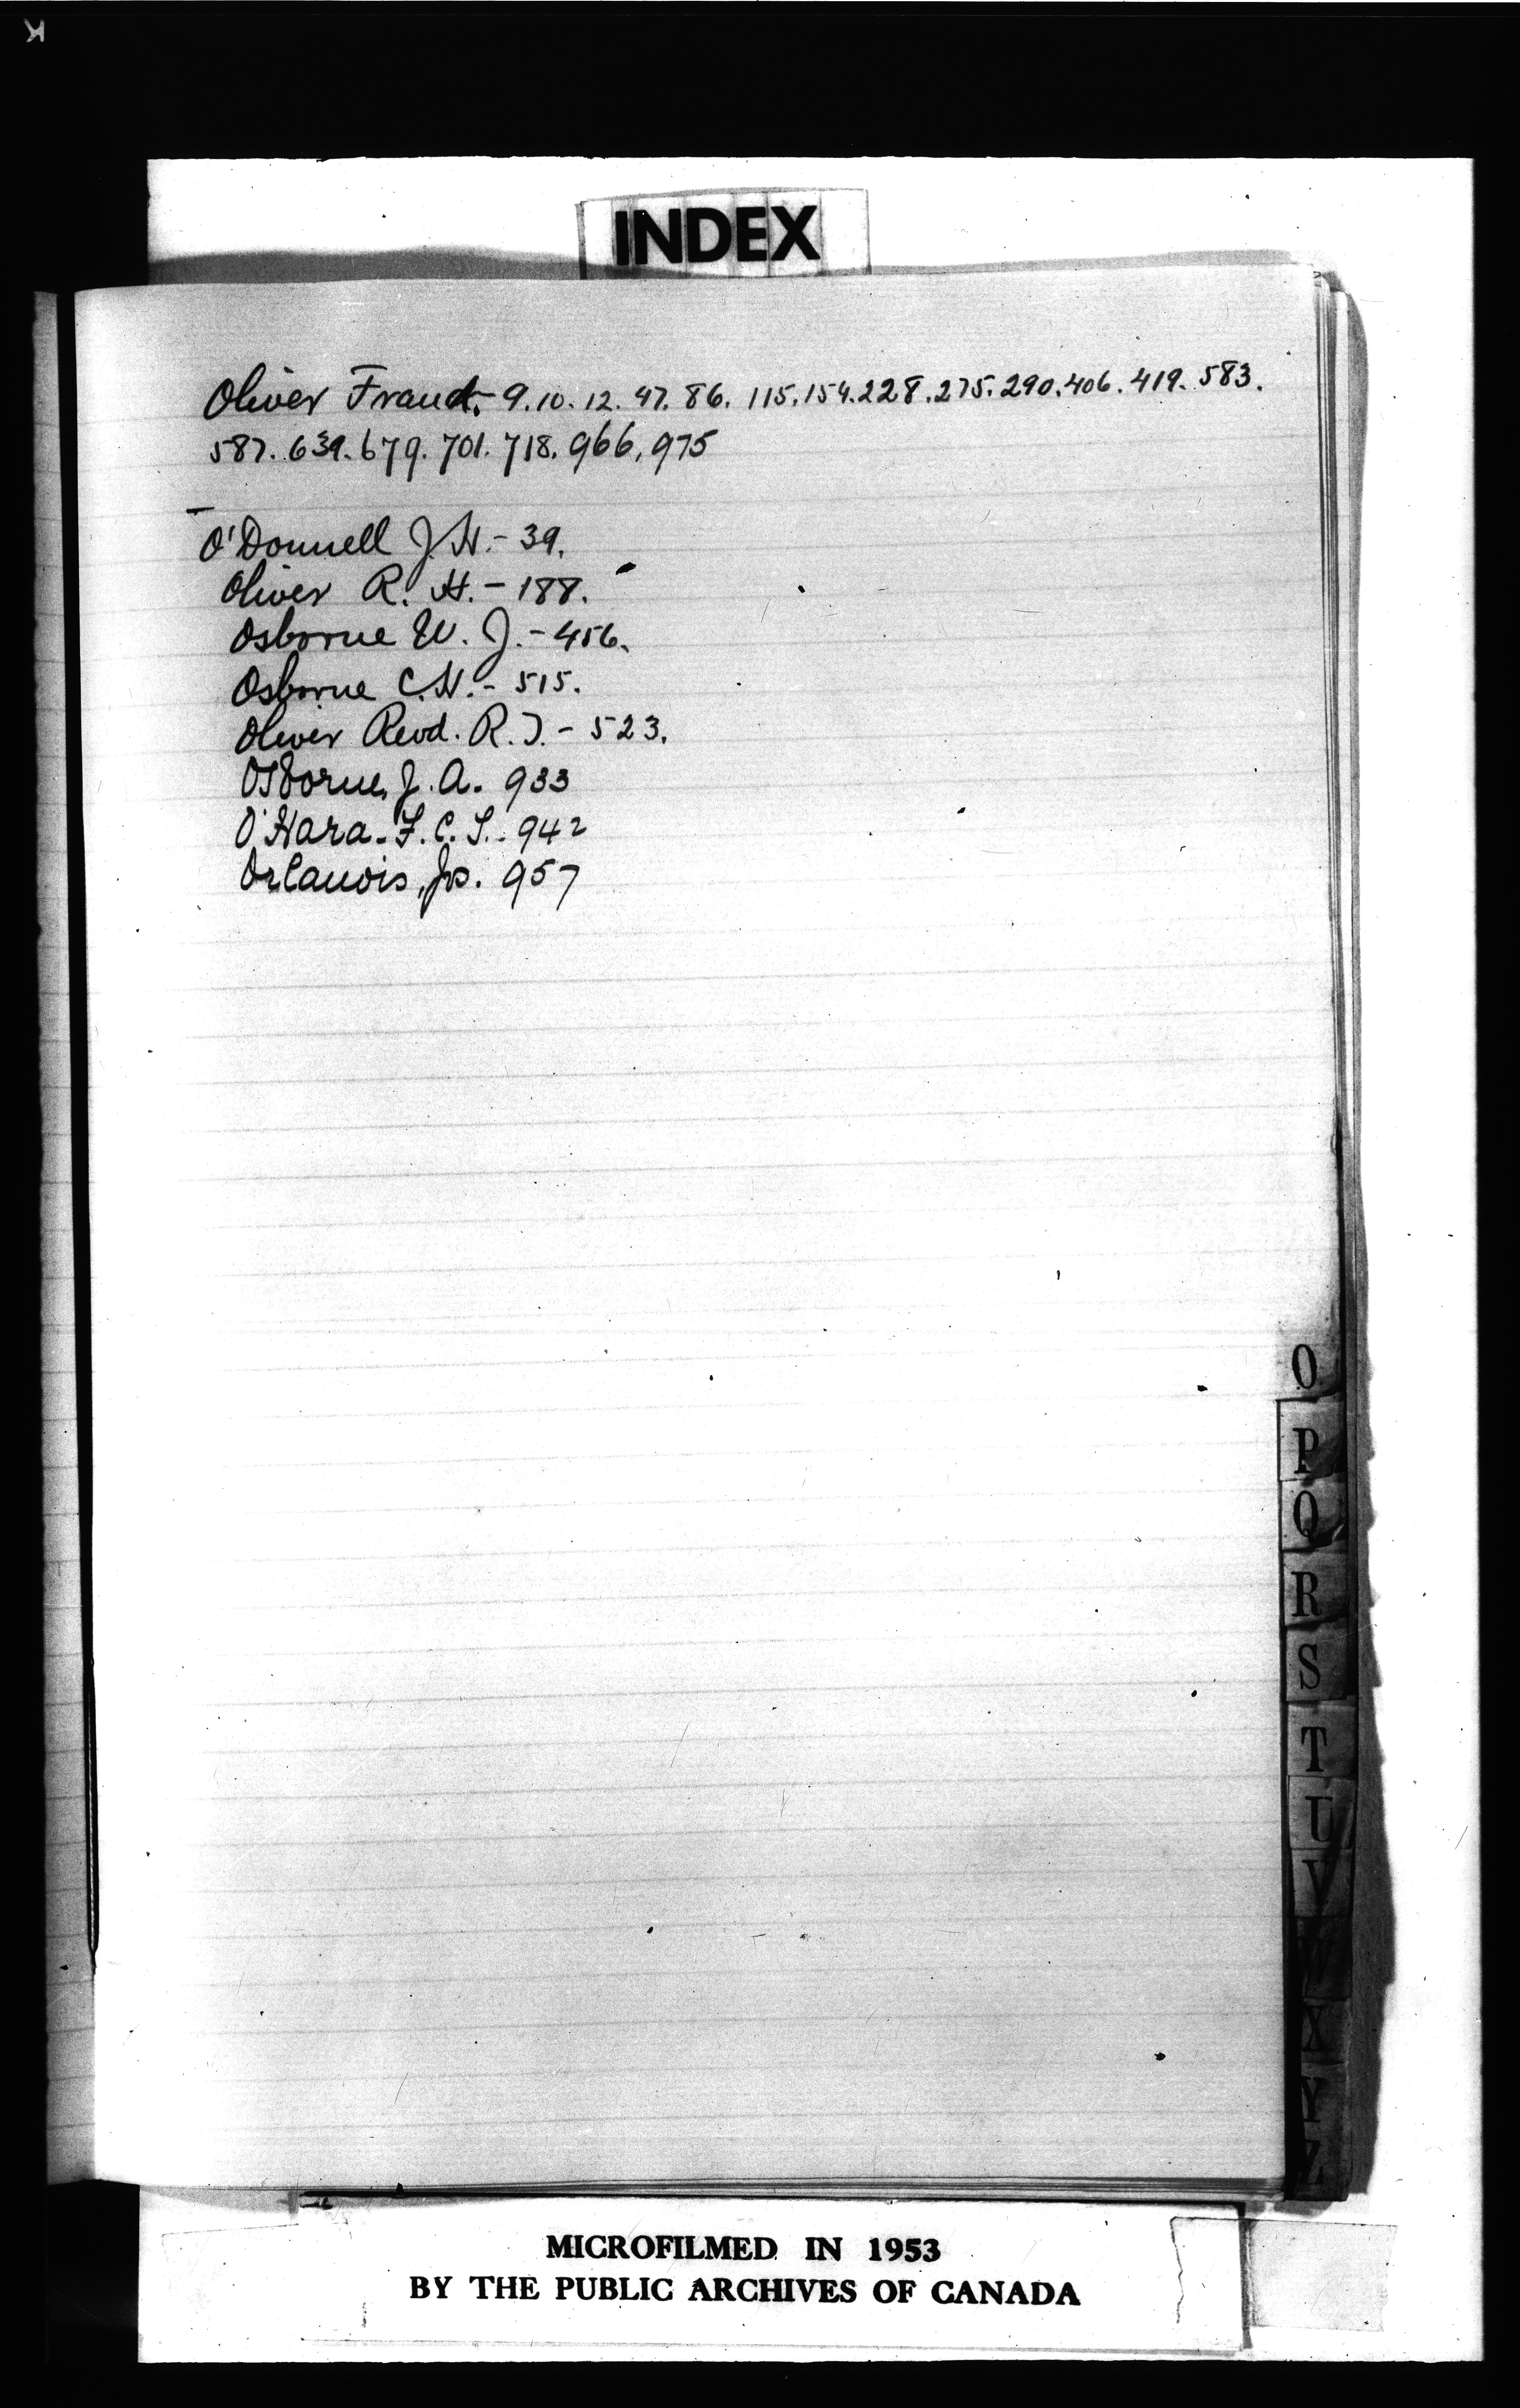 INDEX
Oliver Frank - 9. 10. 12. 47. 86. 115. 154. 228. 275. 290. 406. 419. 583.
587. 639. 679. 701. 718. 966, 975
O'Donnell J. H. - 39.
Oliver R. H. - 188.
Osborne W. J. - 456.
Osborne C. H. - 515.
Oliver Revd. R. J. - 523.
Osborne, J. A. 933
O'Hara - F. C. T. - 942
Orlanois, Js. 957
O
P
Q
R
S
T
U
V
W
X
Y
Z
MICROFILMED IN 1953
BY THE PUBLIC ARCHIVES OF CANADA